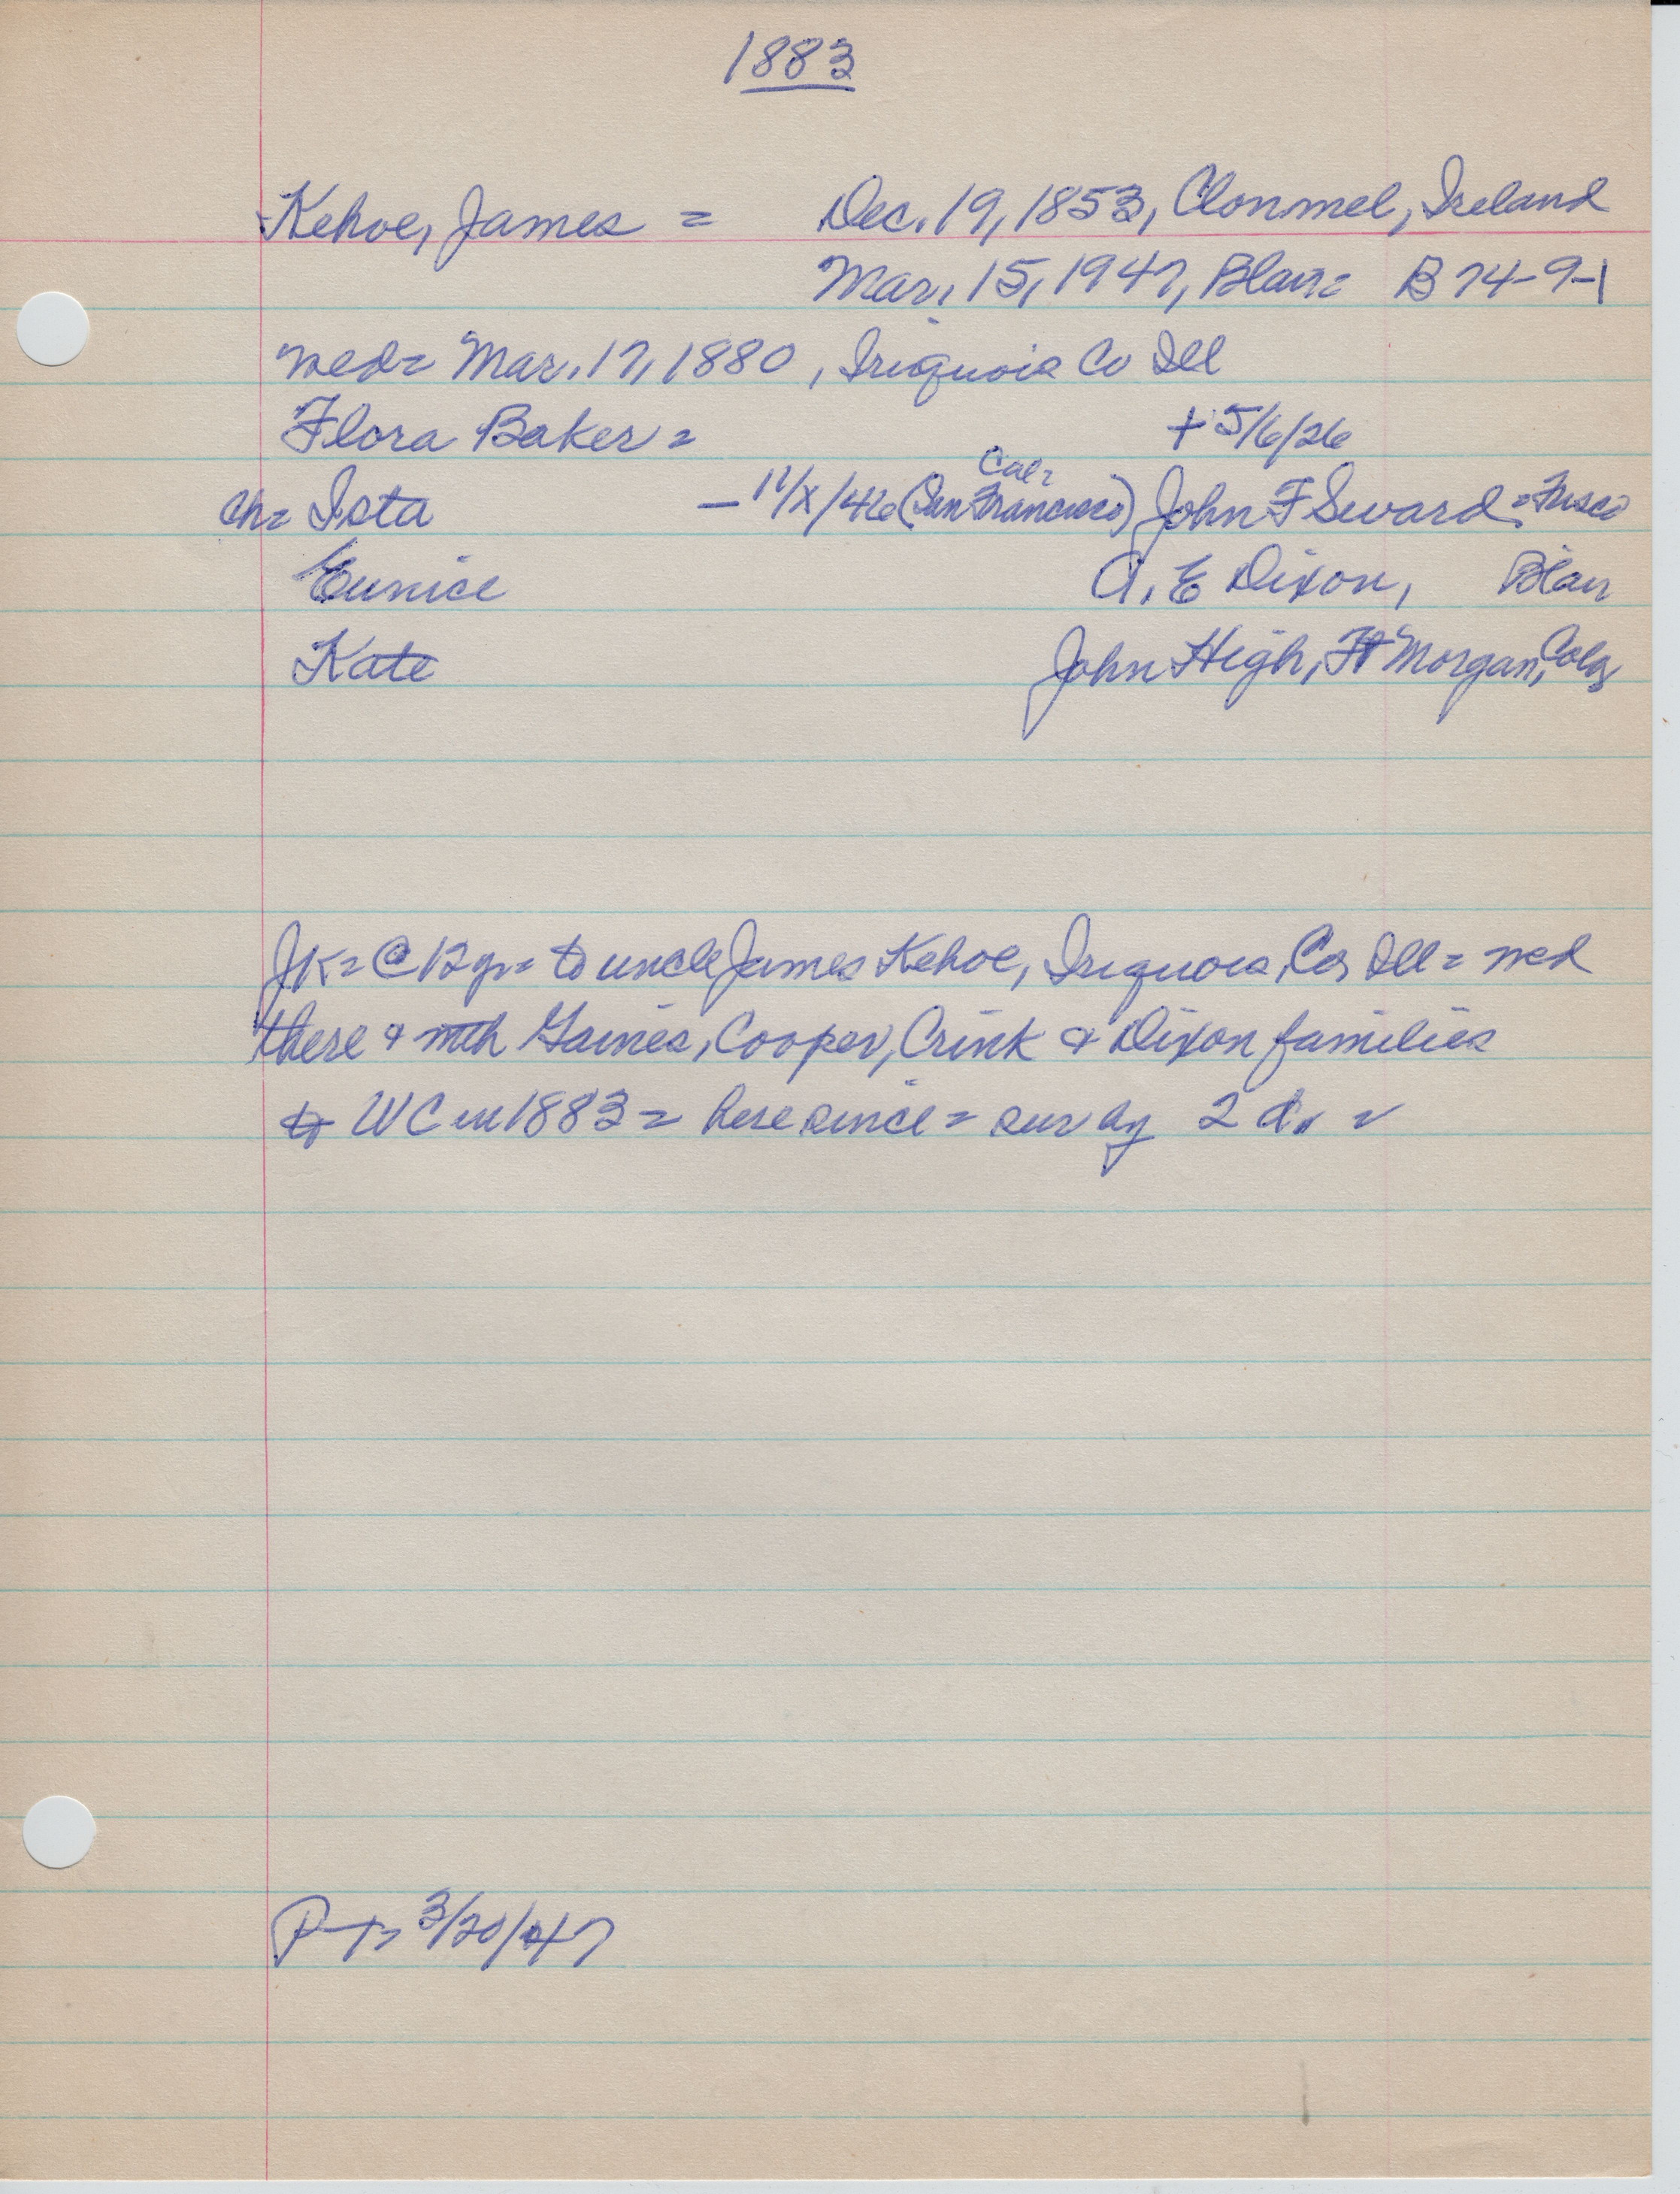 1883
Kehoe, James = Dec. 19, 1853, Clonmel, Ireland
Mar. 15, 1947, Blair = B 74-9-1
wed = Mar. 17, 1880, Iriquois Co Ill
Flora Baker = + 5/6/26
ch = Ista - 11/X/46 (San Francisco) Cal = John F Seward = Frisco
Eunice A. E Dixon, Blair
Kate John High, Ft Morgan, Colo
JK = @ 12 yr = to uncle James Kehoe, Iriquois, Co, Ill = wed
there & with Gaines, Cooper, Crink & Dixon families
to WC in 1883 = here since = sur by 2 d. =
P-T = 3/20/47